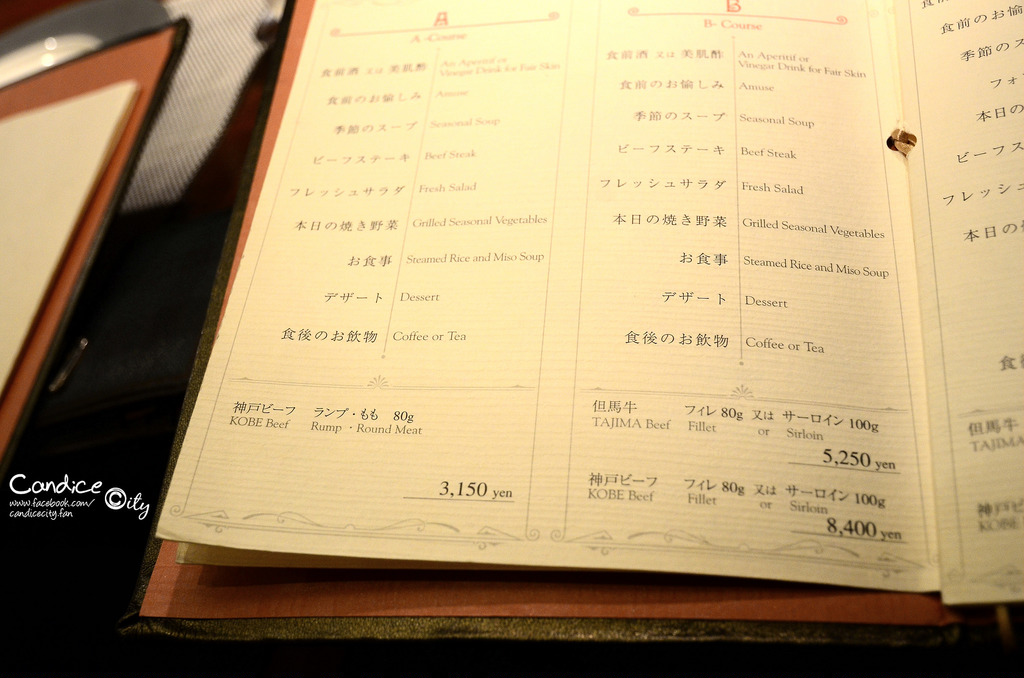 A
A -Course
食前酒 又は 美肌酢 An Aperitif or
Vinegar Drink for Fair Skin
食前のお愉しみ Amuse
季節のスープ Seasonal Soup
ビーフステーキ Beef Steak
フレッシュサラダ Fresh Salad
本日の焼き野菜 Grilled Seasonal Vegetables
お食事 Steamed Rice and Miso Soup
デザート Dessert
食後のお飲物 Coffee or Tea
神戸ビーフ ランプ・もも 80g
KOBE Beef Rump ・Round Meat
3,150 yen
B
B- Course
食前酒 又は 美肌酢 An Aperitif or
Vinegar Drink for Fair Skin
食前のお愉しみ Amuse
季節のスープ Seasonal Soup
ビーフステーキ Beef Steak
フレッシュサラダ Fresh Salad
本日の焼き野菜 Grilled Seasonal Vegetables
お食事 Steamed Rice and Miso Soup
デザート Dessert
食後のお飲物 Coffee or Tea
但馬牛 フィレ 80g 又は サーロイン 100g
TAJIMA Beef Fillet or Sirloin
5,250 yen
神戸ビーフ フィレ 80g 又は サーロイン 100g
KOBE Beef Fillet or Sirloin
8,400 yen
食前のお愉
季節のス
フォ
本日の
ビーフス
フレッシュ
本日の
食
但馬牛
TAJIMA
神戸ビ
KOBE
Candice City
www.facebook.com/
candicecity.fan